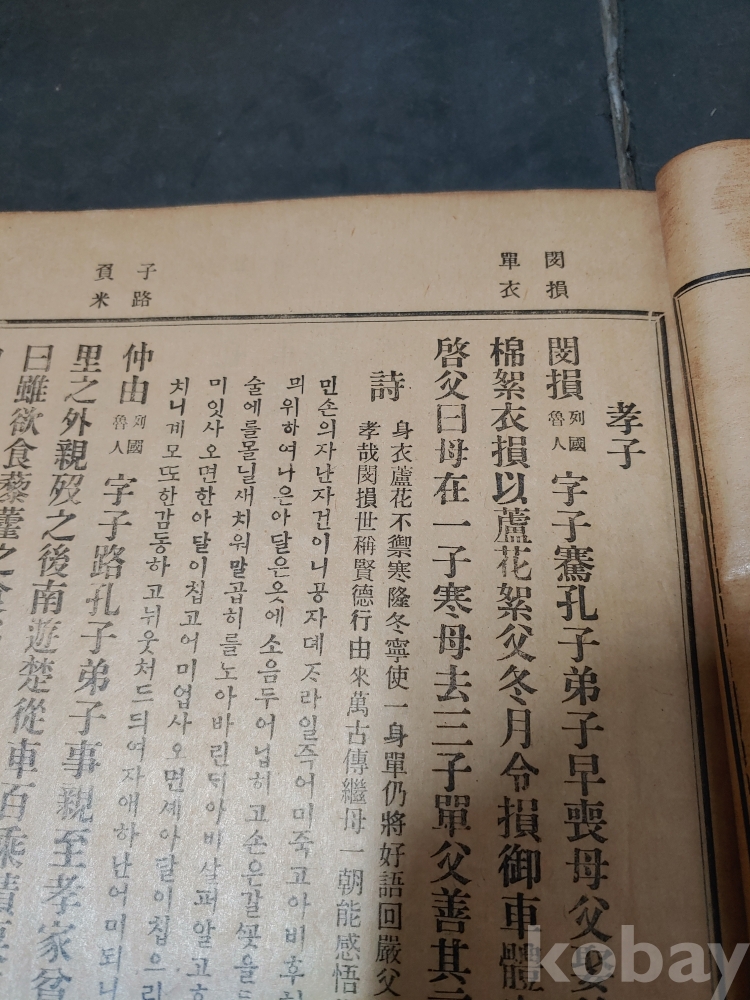 閔損
單衣
子路
負米
孝子
閔損 列國魯人 字子騫孔子弟子早喪母父娶
棉絮衣損以蘆花絮父冬月令損御車體
啓父曰母在一子寒母去三子單父善其言
詩 身衣蘆花不禦寒隆冬寧使一身單仍將好語回嚴父
孝哉閔損世稱賢德行由來萬古傳繼母一朝能感悟
민손의자난자건이니공자뎨ᄌᆞ라일즉어미죽고아비후
의위하여나은아달은옷에소음두어닙히고손은갈ᄭᅩᆺ을
술에를몰닐새치워말곱히를노아바린ᄃᆡ아비살펴알고
미잇사오면한아달이칩고어미업사오면세아달이칩으리
치니계모또한감동하고뉘웃처드듸여자애하난어미되니
仲由 列國魯人 字子路孔子弟子事親至孝家貧
里之外親歿之後南遊楚從車百乘積
曰雖欲食藜藿之
kobay